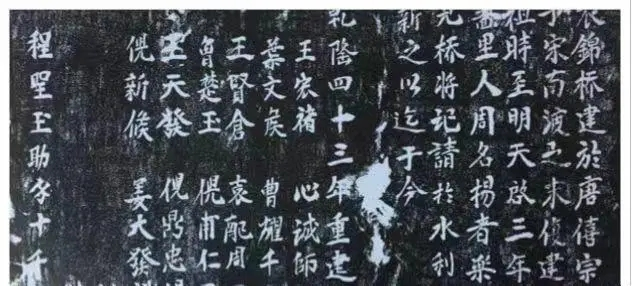 衣錦桥建於唐僖宗
于宋南渡之末復建
祖時至明天啟三年
里人周名揚者樂
桥将记請於水利
新之以迄于今
乾隆四十三年重建
王宏禇 心诚師
葉文 曹耀千
王賢倉 袁配周
魯楚玉 倪甫仁
王天發 倪鼎忠
倪新候 姜大發
程聖玉助 十千